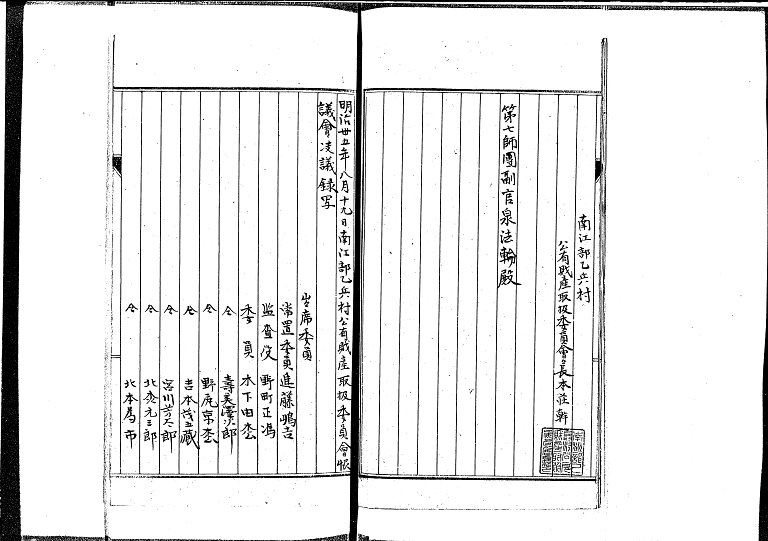 南江部乙兵村
公有財産取扱委員會長本荘幹
第七師團副官泉法輪殿
明治卅五年八月十九日南江部乙兵村公有財産取扱委員會帳
議會决議録写
出席委員
常置委員進藤嶋吉
監査役 野町正馮
委員 木下由
仝 壽美
仝 野尻京
仝 吉本 藏
仝 宮川 郎
仝 北 元三郎
仝 北本為市